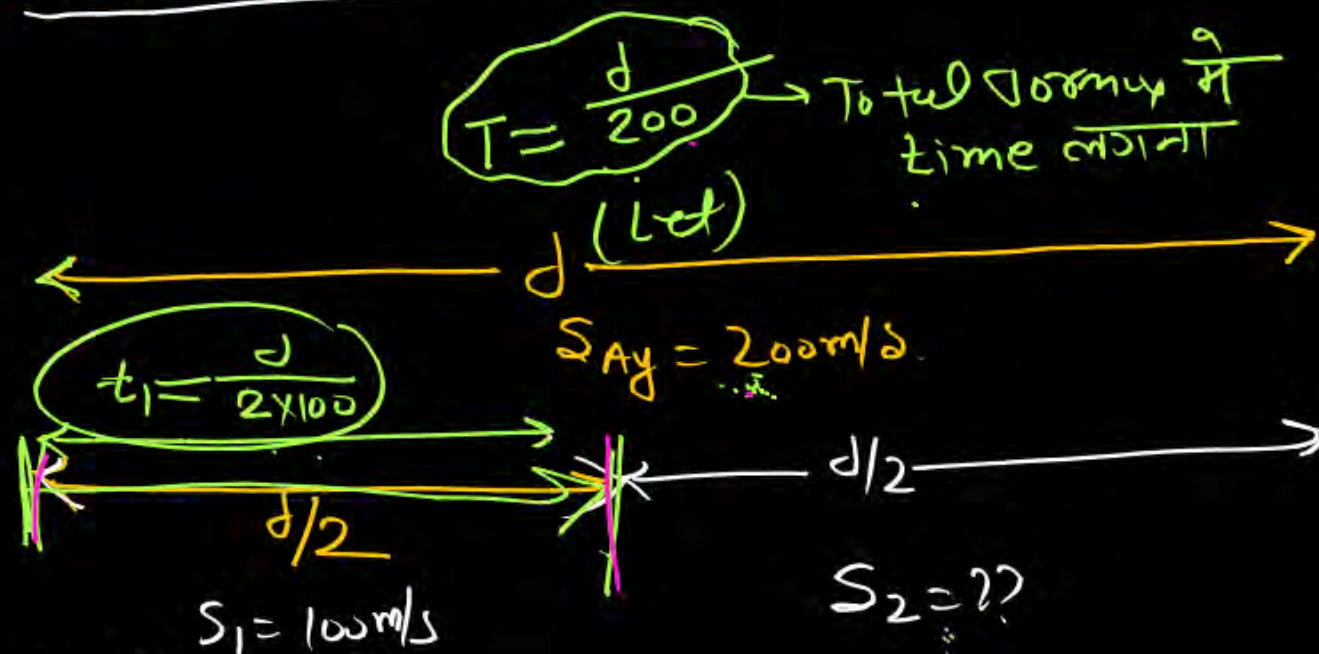 T = d/200 → Total Journey में
time लगना
(Let)
d
S Av = 200m/s
t₁ = d/2×100
d/2
d/2
S₁ = 100m/s
S₂ = ??